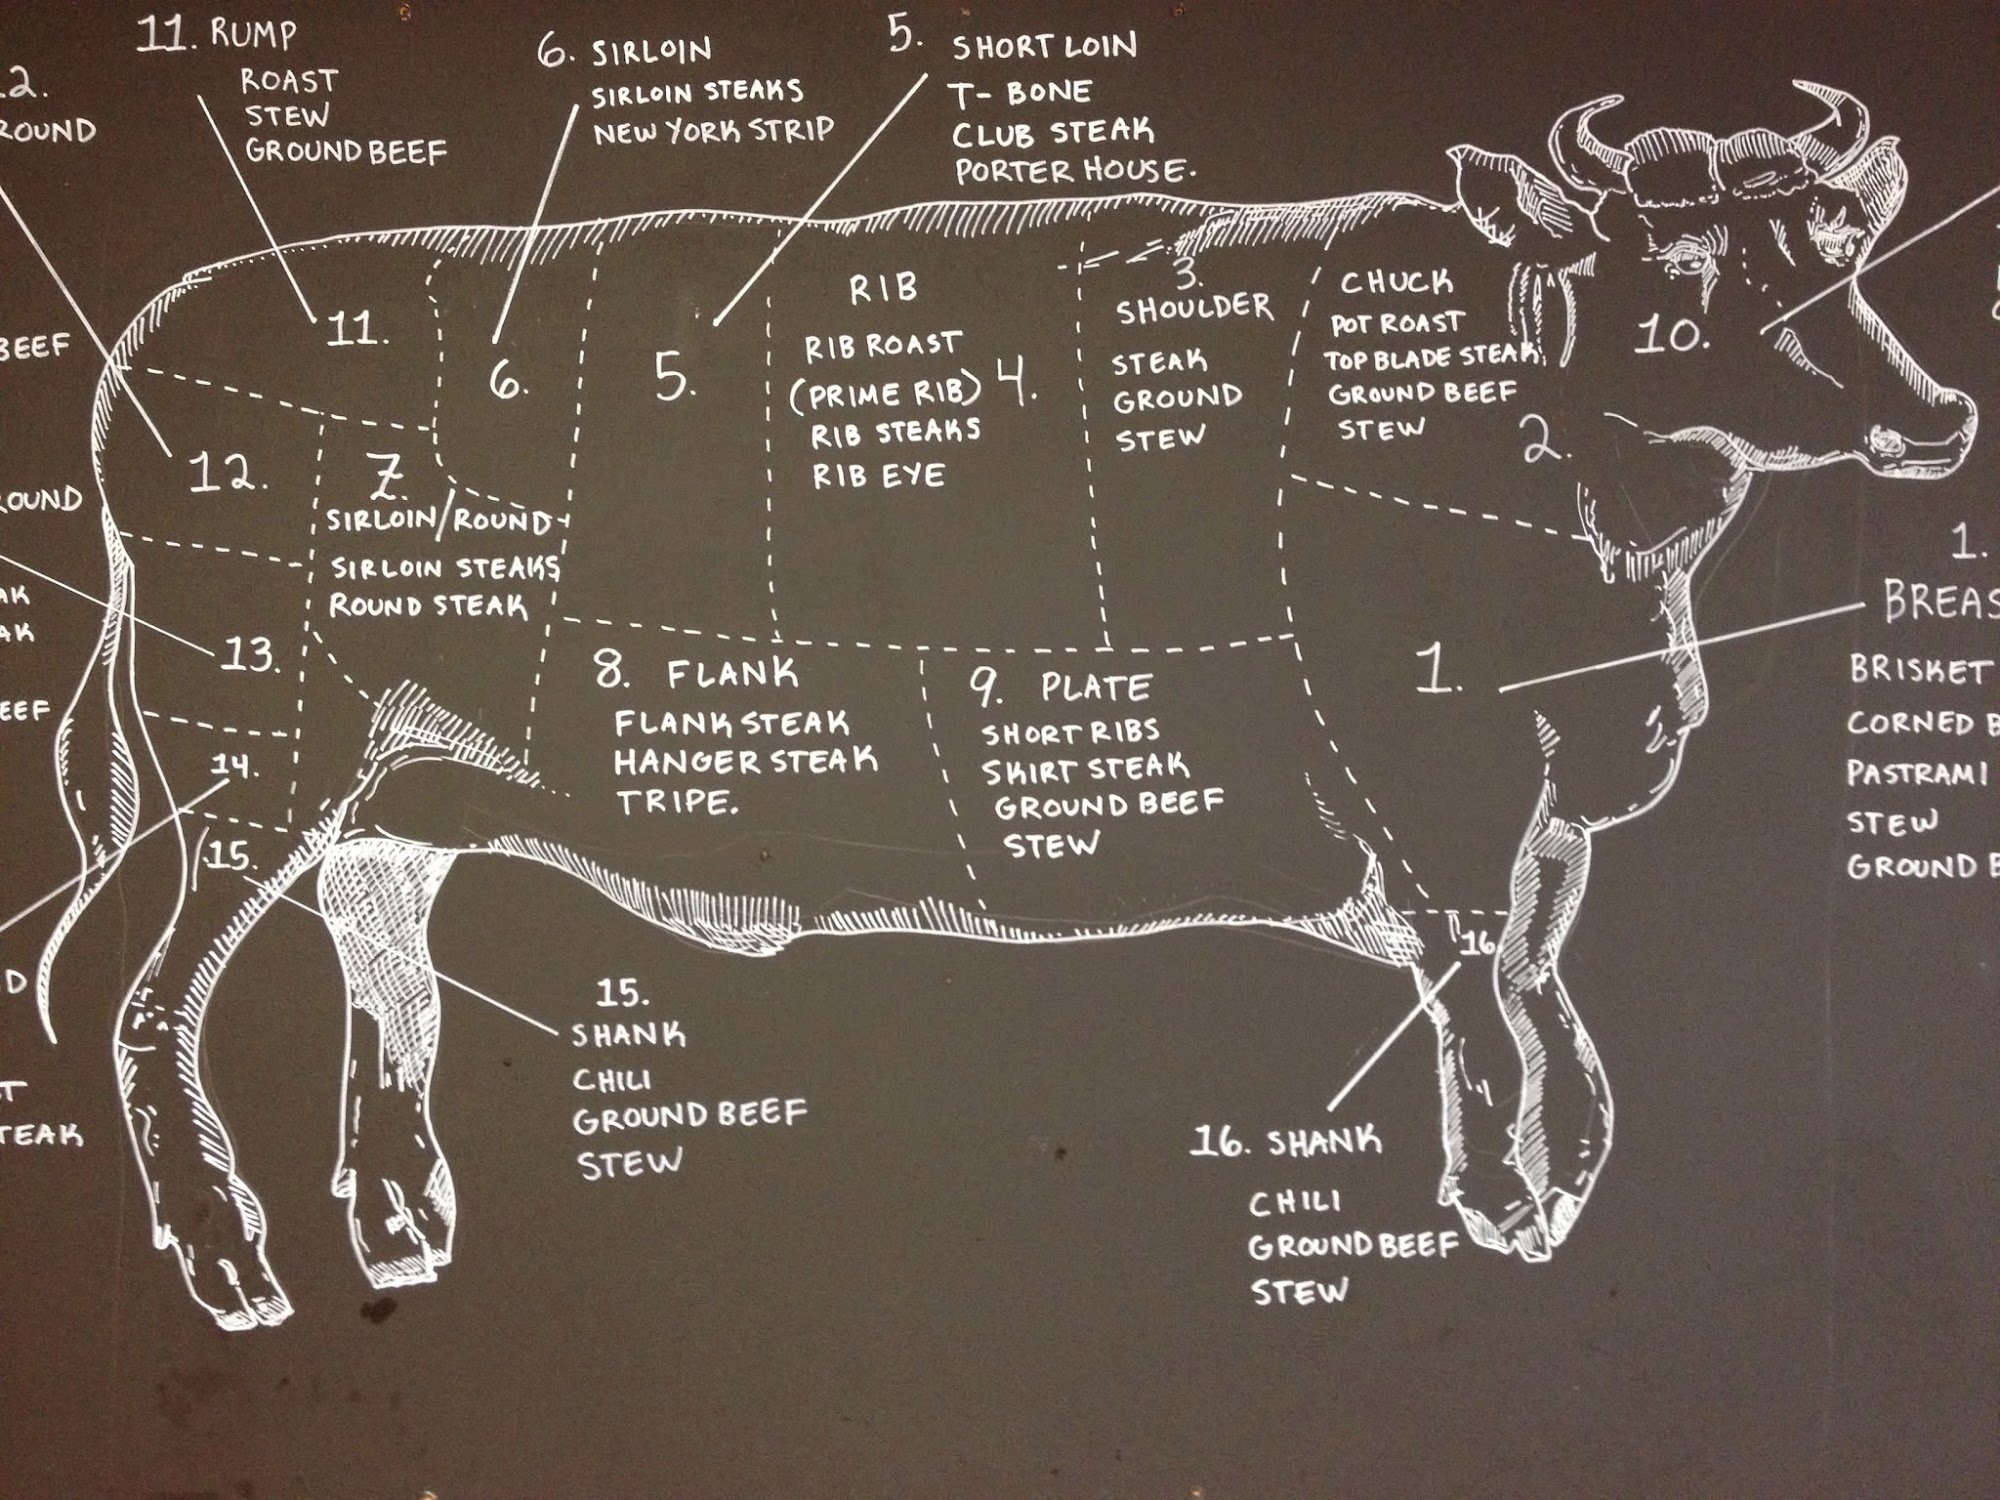 11. RUMP
ROAST
STEW
GROUND BEEF
6. SIRLOIN
SIRLOIN STEAKS
NEW YORK STRIP
5. SHORT LOIN
T-BONE
CLUB STEAK
PORTER HOUSE.
2.
ROUND
BEEF
OUND
AK
AK
EEF
D
T
TEAK
11.
12.
13.
14.
15.
6.
5.
7.
SIRLOIN/ROUND
SIRLOIN STEAKS
ROUND STEAK
RIB
RIB ROAST
(PRIME RIB) 4.
RIB STEAKS
RIB EYE
3.
SHOULDER
STEAK
GROUND
STEW
CHUCK
POT ROAST
TOP BLADE STEAK
GROUND BEEF
STEW
2.
10.
8. FLANK
FLANK STEAK
HANGER STEAK
TRIPE.
9. PLATE
SHORT RIBS
SKIRT STEAK
GROUND BEEF
STEW
1.
1.
BREAS
BRISKET
CORNED B
PASTRAMI
STEW
GROUND B
16.
15.
SHANK
CHILI
GROUND BEEF
STEW
16. SHANK
CHILI
GROUND BEEF
STEW